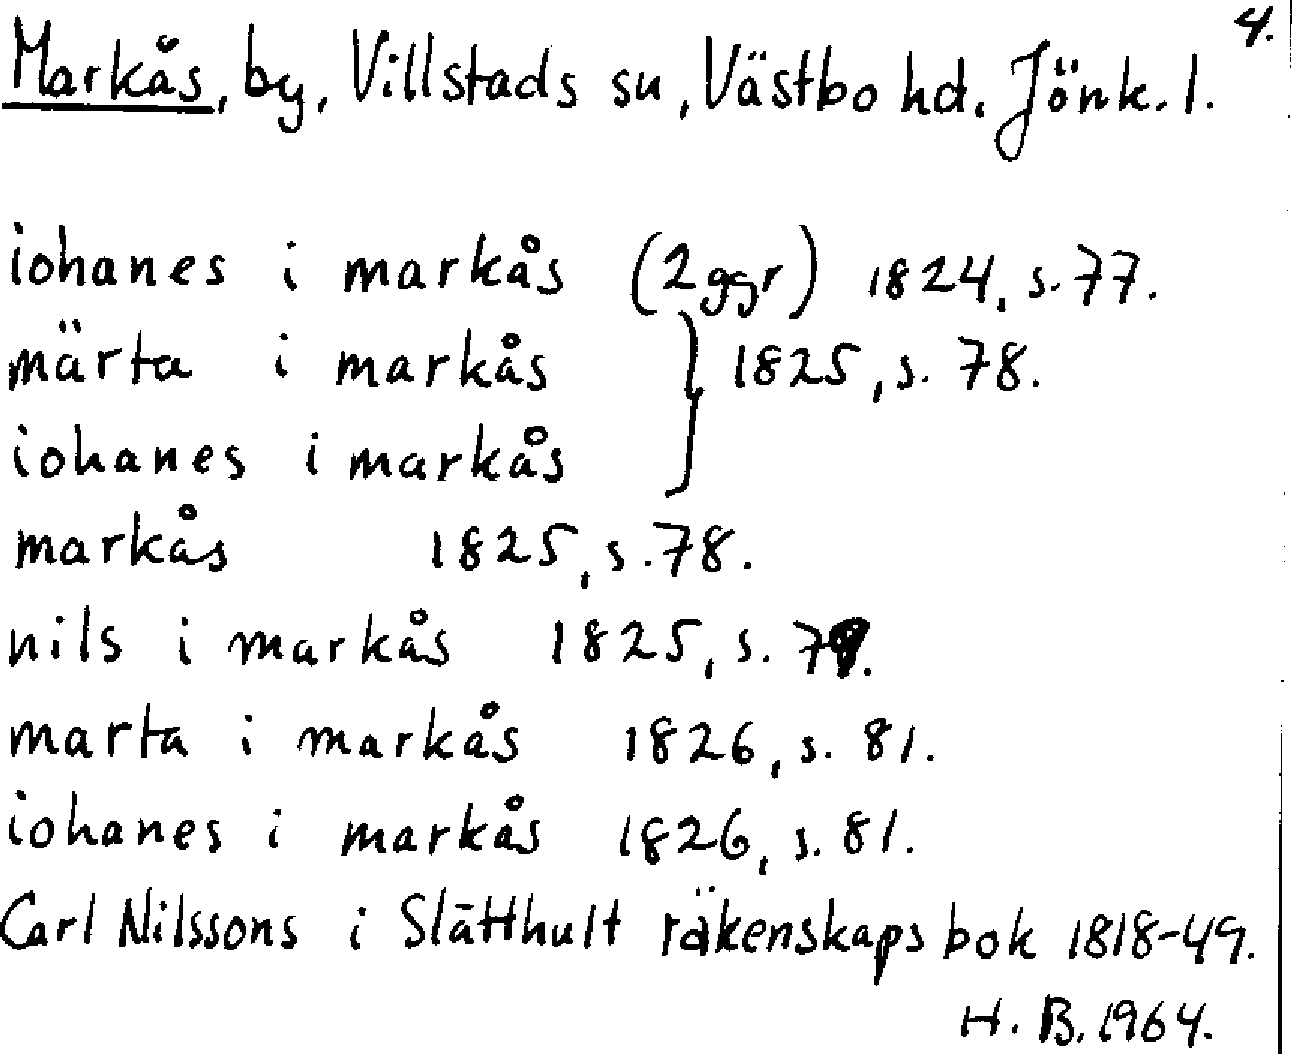 4.
Markås, by, Villstads sn, Västbo hd. Jönk. l.
iohanes i markås (2 ggr) 1824, s. 77.
märta i markås } 1825, s. 78.
iohanes i markås
markås 1825, s. 78.
nils i markås 1825, s. 79.
marta i markås 1826, s. 81.
iohanes i markås 1826, s. 81.
Carl Nilssons i Slätthult räkenskapsbok 1818-49.
H. B. 1964.